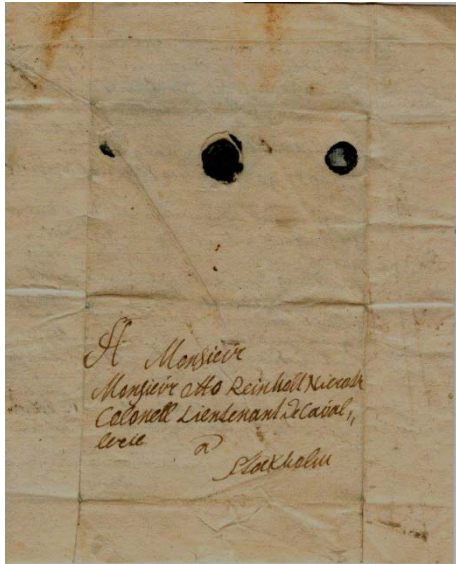 A Monsieur
Monsieur Otto Reinholt Nieroth
Colonell Lieutenant de Caval„
lerie
a
Stockholm